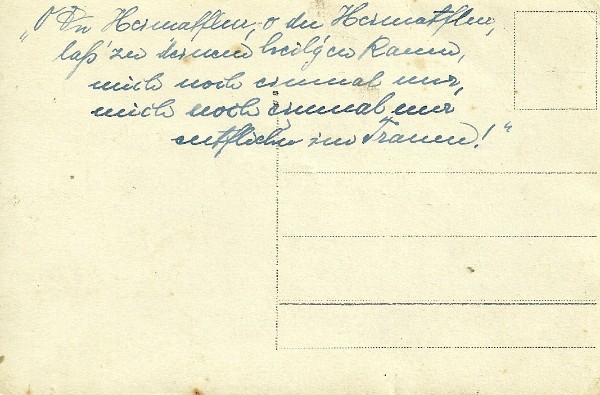 „O Du Heimatflur, o du Heimatflur,
laß' zu deinem heil'gen Raum,
mich noch einmal nur,
mich noch einmal nur
entfliehn im Traum!"